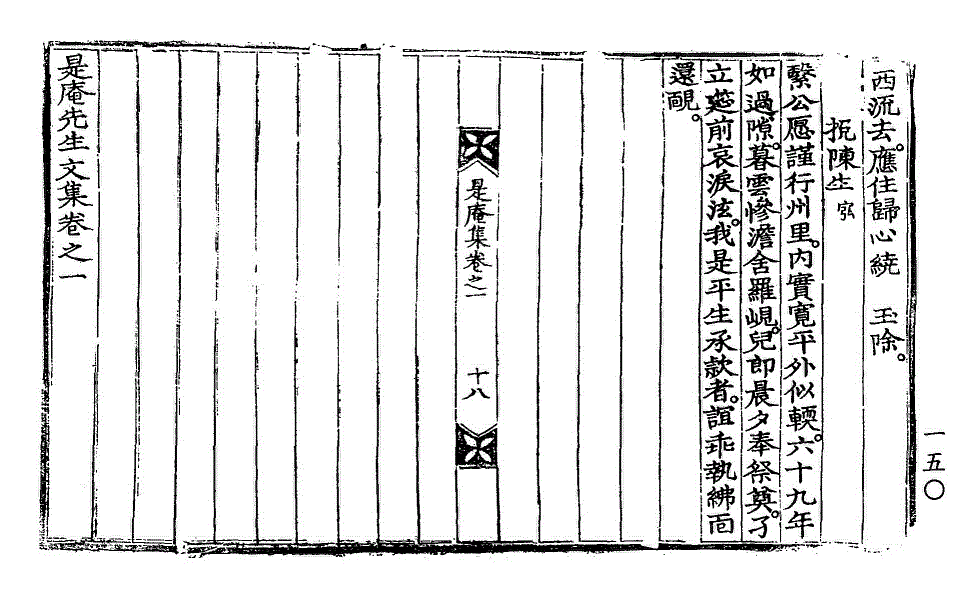 西流去。應住歸心繞 玉除。
挽陳生 宖
繄公愿謹行州里。內實寬平外似輭。六十九年
如過隙。暮雲慘澹舍羅峴。兒郎晨夕奉祭奠。孑
立筵前哀淚泫。我是平生承款者。誼乖執紼面
還靦。
是庵集卷之一
十八
是庵先生文集卷之一
一五〇